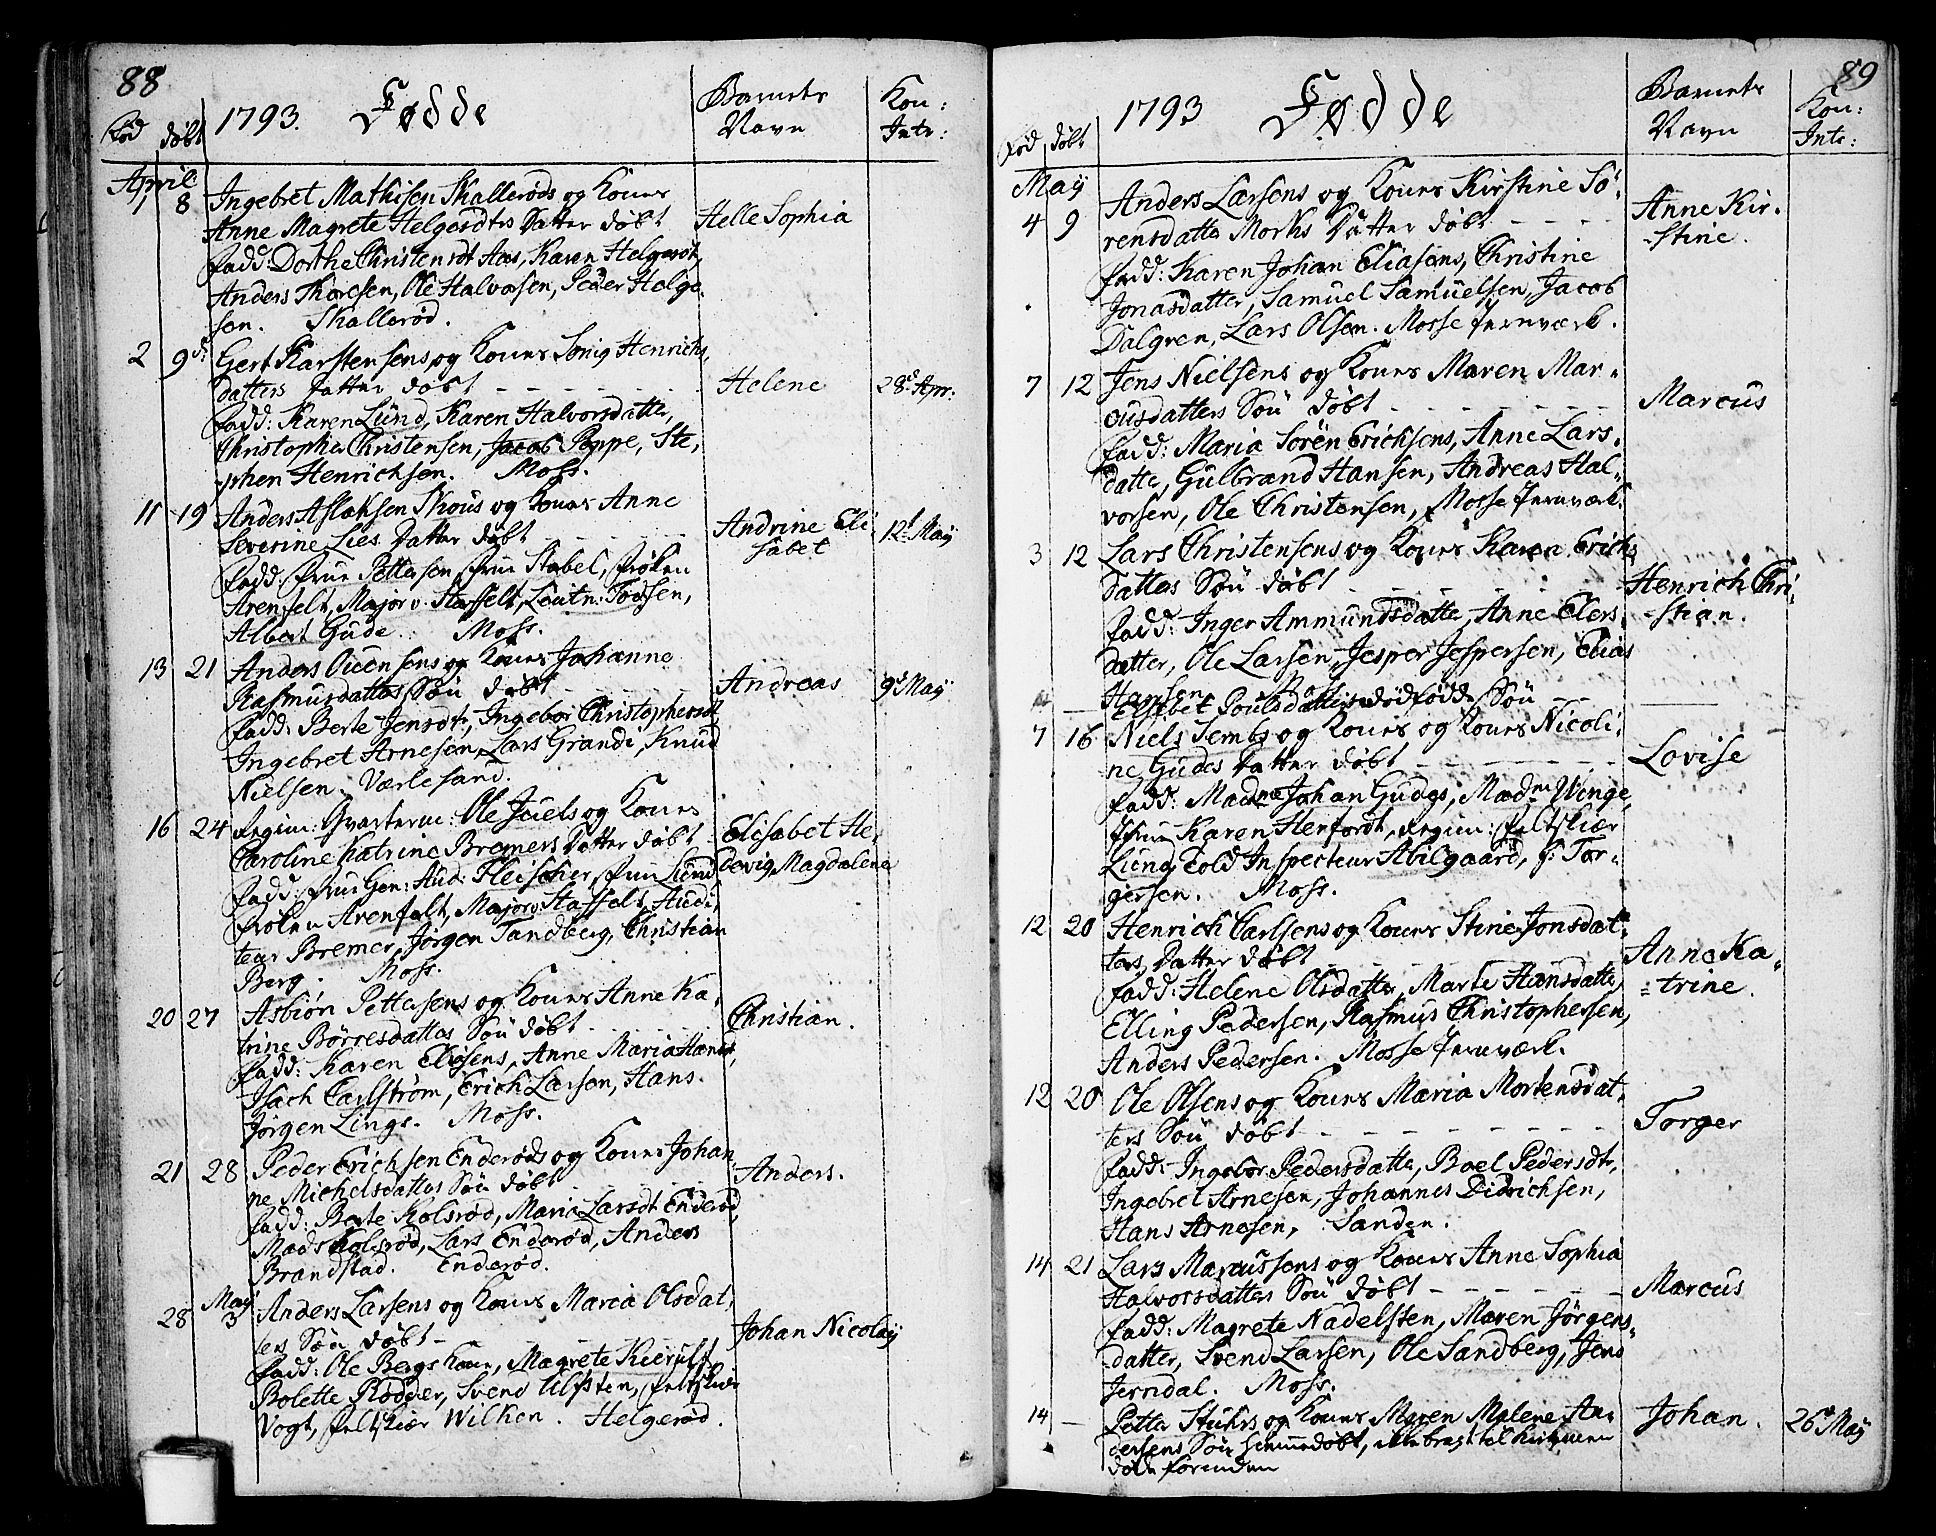 88
1793. Fødde
Barnets Navn
Kon: Intr:
Fød døbt
April
1 8 Ingebret Mathisen Skallerøds og Kones
Anne Magrete Helgesdtrs Datter døbt
Helle Sophia
Fadd: Dorthe Christensdt Aas, Karen Helgesdt,
Anders Thoresen, Ole Halvorsen, Peder Helge-
sen. Skallerød.
2 9d Gert Karstensens og Kones Henrichs
datters Datter døbt
Helene 28d Apr.
Fadd: Karen Lund, Karen Halvorsdatter,
Christopher Christensen, Jacob Poppe, Ste-
phen Henrichsen. Moss.
11 19 Anders Aslaksen Skous og Kones Anne
Severine Lies Datter døbt
Andrine Eli
sabet 12t May
Fadd: Frue Pettersen, Frue Stabel, Frøken
Arenfelt, Major v. Staffelt, Leutn: Todsen,
Albert Gude. Moss.
13 21 Anders Oiensens og Kones Johanne
Rasmusdatters Søn døbt
Andreas 9d May
Fadd: Berte Jensdtr, Ingebor Christophersdt
Ingebret Arnesen, Lars Grandi, Knud
Nielsen. Værlesand.
16 24 Regim: Qvarterm: Ole Juels og Kones
Caroline Katrine Bremers Datter døbt
Elisabet He,
devig Magdalena
Fadd: Frue Gen: Aud: Fleischer, Frue Lund,
Frøken Arenfalt, Major v Staffelt, Audi,
teur Bremer, Jørgen Tandberg, Christian
Berg. Moss.
20 27 Asbiørn Pettersens og Kones Anne Ka,
trine Børresdatters Søn døbt
Christian.
Fadd: Karen Eliasens, Anne Maria Hansdt,
Isach Carlstrøm, Erich Larsen, Hans
Jørgen Lings. Moss.
21 28 Peder Erichsen Enderøds og Kones Johan
ne Michelsdatters Søn døbt
Anders.
Fadd: Berte Kolsrød, Maria Larsdt Enderød,
Mads Kolsrød, Lars Enderød, Anders
Brandstad. Enderød.
28 May 3 Anders Larsens og Kones Maria Olsdat,
ters Søn døbt
Johan Nicolay
Fadd: Ole Bergs Kone, Magrete Kierulf
Bolette Rødder, Svend Ulfsten, Feltskiær
Vogt, Feltskiær Wilken. Helgerød.
89
1793 Fødde
Barnets Navn
Kon: Intr:
Fød døbt
May
4 9 Anders Larsens og Kones Kirstine Sø-
rensdatter Morks Datter døbt
Anne Kir-
stine.
Fadd: Karen Johan Eliasens, Christine
Jonasdatter, Samuel Samuelsen, Jacob
Dalgren, Lars Olsen. Mosse Jernværk.
7 12 Jens Nielsens og Kones Maren Mar-
cusdatters Søn døbt
Marcus
Fadd: Maria Søren Erichsens, Anne Lars-
datter, Gulbrand Hansen, Andreas Hal-
vorsen, Ole Christensen, Mosse Jernværk.
3 12 Lars Christensens og Kones Karen Erichs
datters Søn døbt
Henrich Chri-
stian.
Fadd: Inger Ammundsdatter, Anne Elers-
datter, Ole Larsen, Jesper Jespersen, Elias
Hansen. Moss.
Elisabet Poulsdatters dødfødde Søn
7 16 Niels Sembs og Kones og Kones Nicoli-
ne Gudes Datter døbt
Lovise
Fadd: Madme Johan Gudes, Madme Winge,
Frue Karen Herfordt, Regim: Feltskiær
Lund, Told Inspecteur Abilgaard, f: Tor-
gersen. Moss.
12 20 Henrich Carlsens og Kones Stine Jonsdat-
ters Datter døbt
Anne Ka-
trine.
Fadd: Helene Olsdatter, Marte Hansdatter,
Elling Pedersen, Rasmus Christophersen,
Anders Pedersen. Mosse Jernværk.
12 20 Ole Olsens og Kones Maria Mortensdat-
ters Søn døbt
Torger
Fadd: Ingebor Pedersdatter, Boel Pedersdtr,
Ingebret Arnesen, Johannes Didrichsen,
Hans Arnesen, Sanden.
14 21 Lars Marcussens og Kones Anne Sophia
Halvorsdatters Søn døbt
Marcus
Fadd: Magrete Nadelsten, Maren Jørgens-
datter, Svend Larsen, Ole Sandberg, Jens
Jerndal. Moss.
14 — Petter Stuhrs og Kones Maren Malene An-
dersens Søn hiemmedøbt, ikke bragt til Kirken men
døde forinden
Johan. 26d May